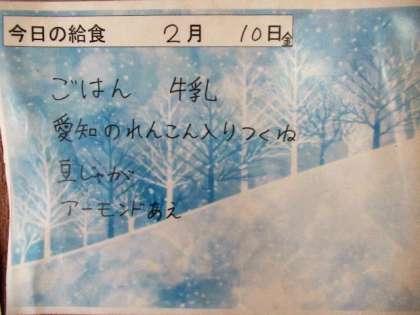 今日の給食 2月 10日金
ごはん 牛乳
愛知のれんこん入りつくね
豆じゃが
アーモンドあえ